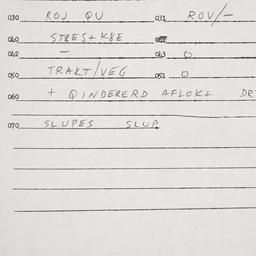 030 ROJ QU 031 ROV/-
040 STRES+K8E
042 - 043 O
050 TRAKT/VEG 051 O
060 + QINDERERD AFLOK+ DR
070 SLUPES SLUP